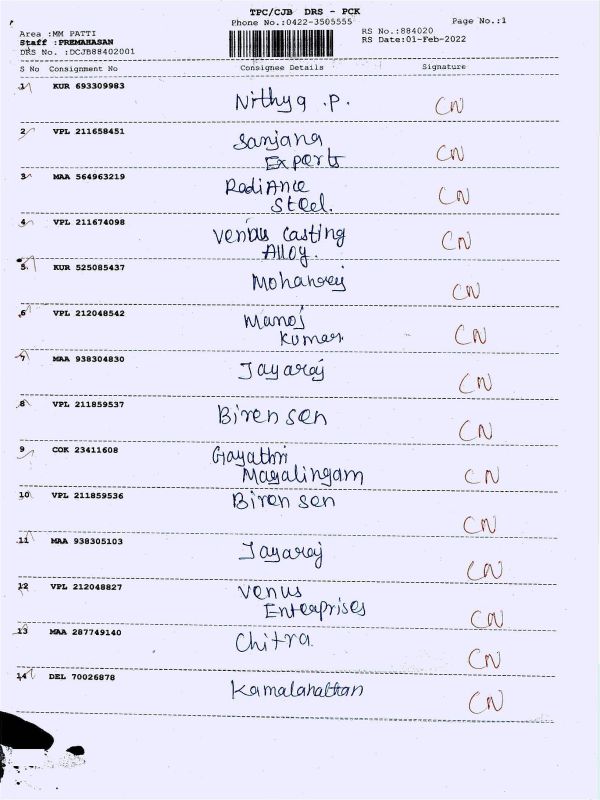 TPC/CJB DRS - PCK
Phone No.:0422-3505555
Page No.:1
Area :MM PATTI
Staff :PREMAHASAN
DRS No. :DCJB88402001
RS No.:884020
RS Date:01-Feb-2022
S No Consignment No Consignee Details Signature
1 KUR 693309983 Nithya .P. CN
2 VPL 211658451 Sanjana
Exports CN
3 MAA 564963219 Radiance
Steel. CN
4 VPL 211674098 Venus Casting
Alloy. CN
5 KUR 525085437 Mohanraj CN
6 VPL 212048542 Manoj
Kumar. CN
7 MAA 938304830 Jayaraj CN
8 VPL 211859537 Biren sen CN
9 COK 23411608 Gayathri
Magalingam CN
10 VPL 211859536 Biren sen CN
11 MAA 938305103 Jayaraj CN
12 VPL 212048827 Venus
Enterprises CN
13 MAA 287749140 Chitra. CN
14 DEL 70026878 CN